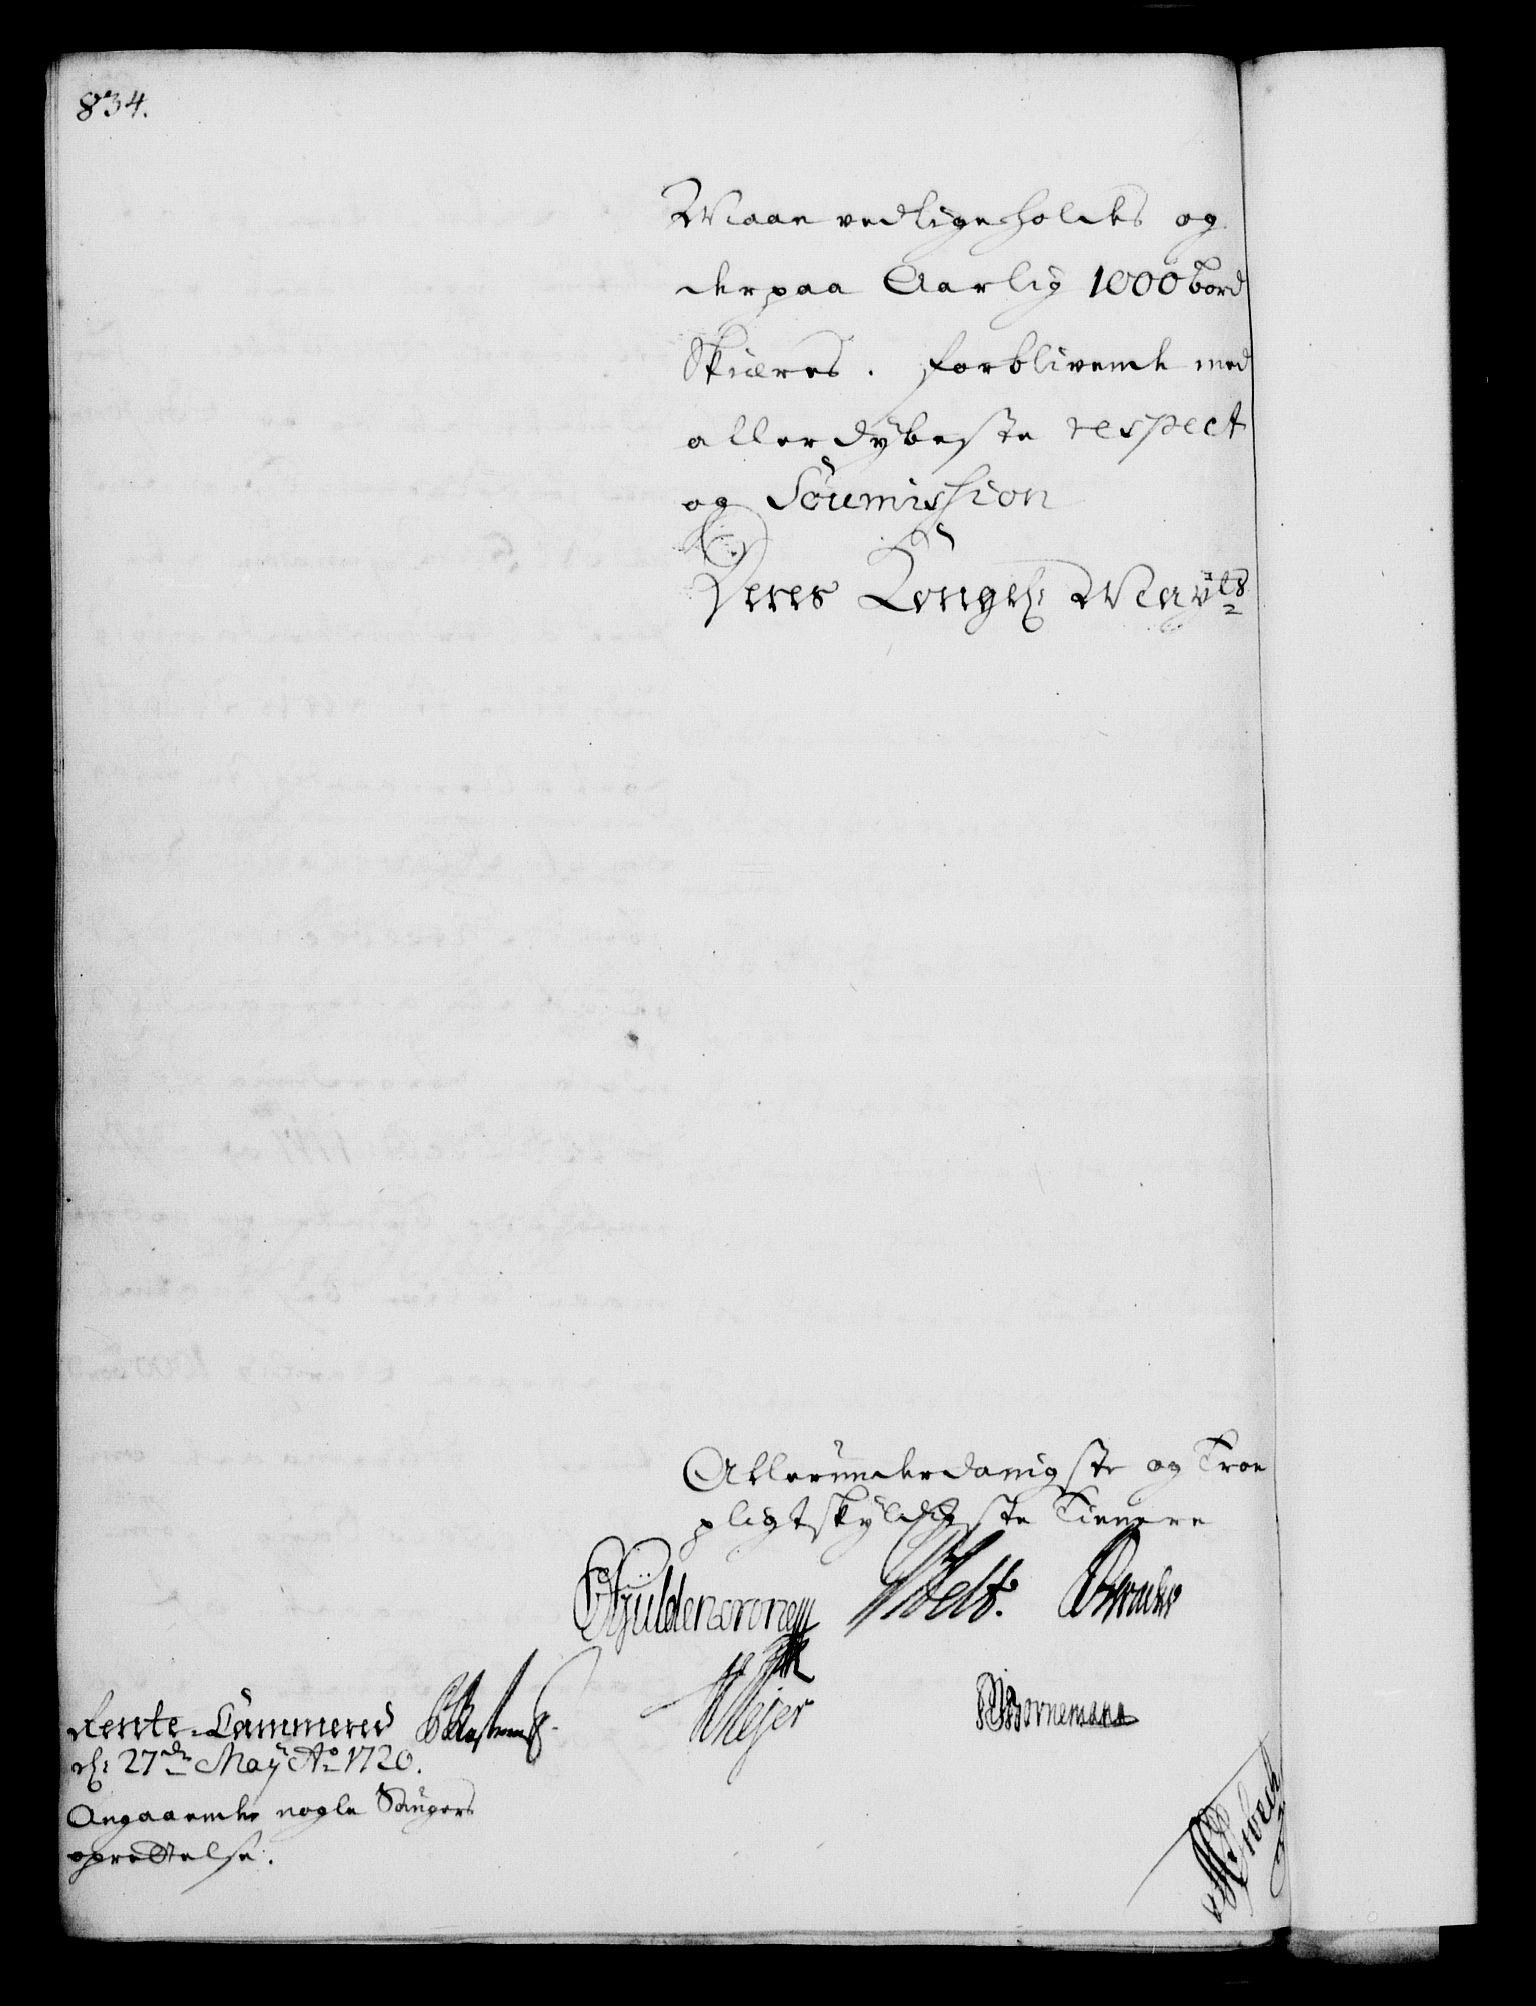 834.
Maae vedligeholdes og
derpaa Aarlig 1000 bord
Skiæres. forblivende med
allerdybeste respect
og Soumission
Deres Kongel: Mayts
Allerunderdanigste og Troe
pligtskyldigste Tienere
Gyldencrone
Meyer
Bornemann
Rente-Cammered
d: 27de May Ao 1720.
Angaaende nogle Saugers
oprettelse.